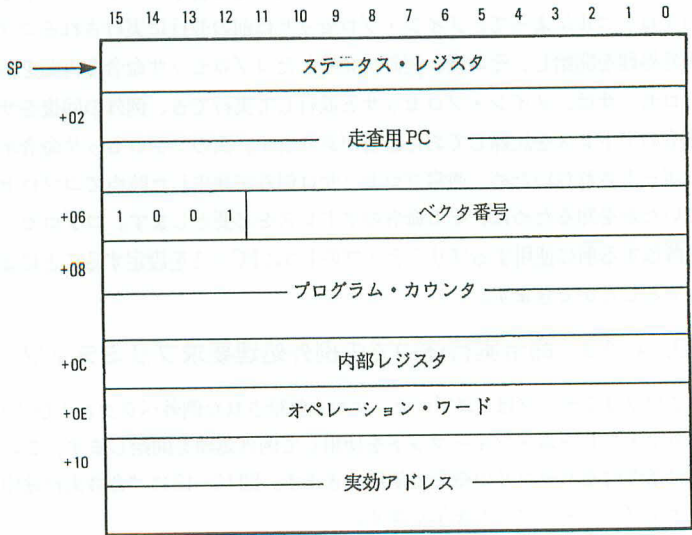 15 14 13 12 11 10 9 8 7 6 5 4 3 2 1 0
SP ステータス・レジスタ
+02
走査用PC
+06 1 0 0 1 ベクタ番号
+08
プログラム・カウンタ
+0C 内部レジスタ
+0E オペレーション・ワード
+10
実効アドレス